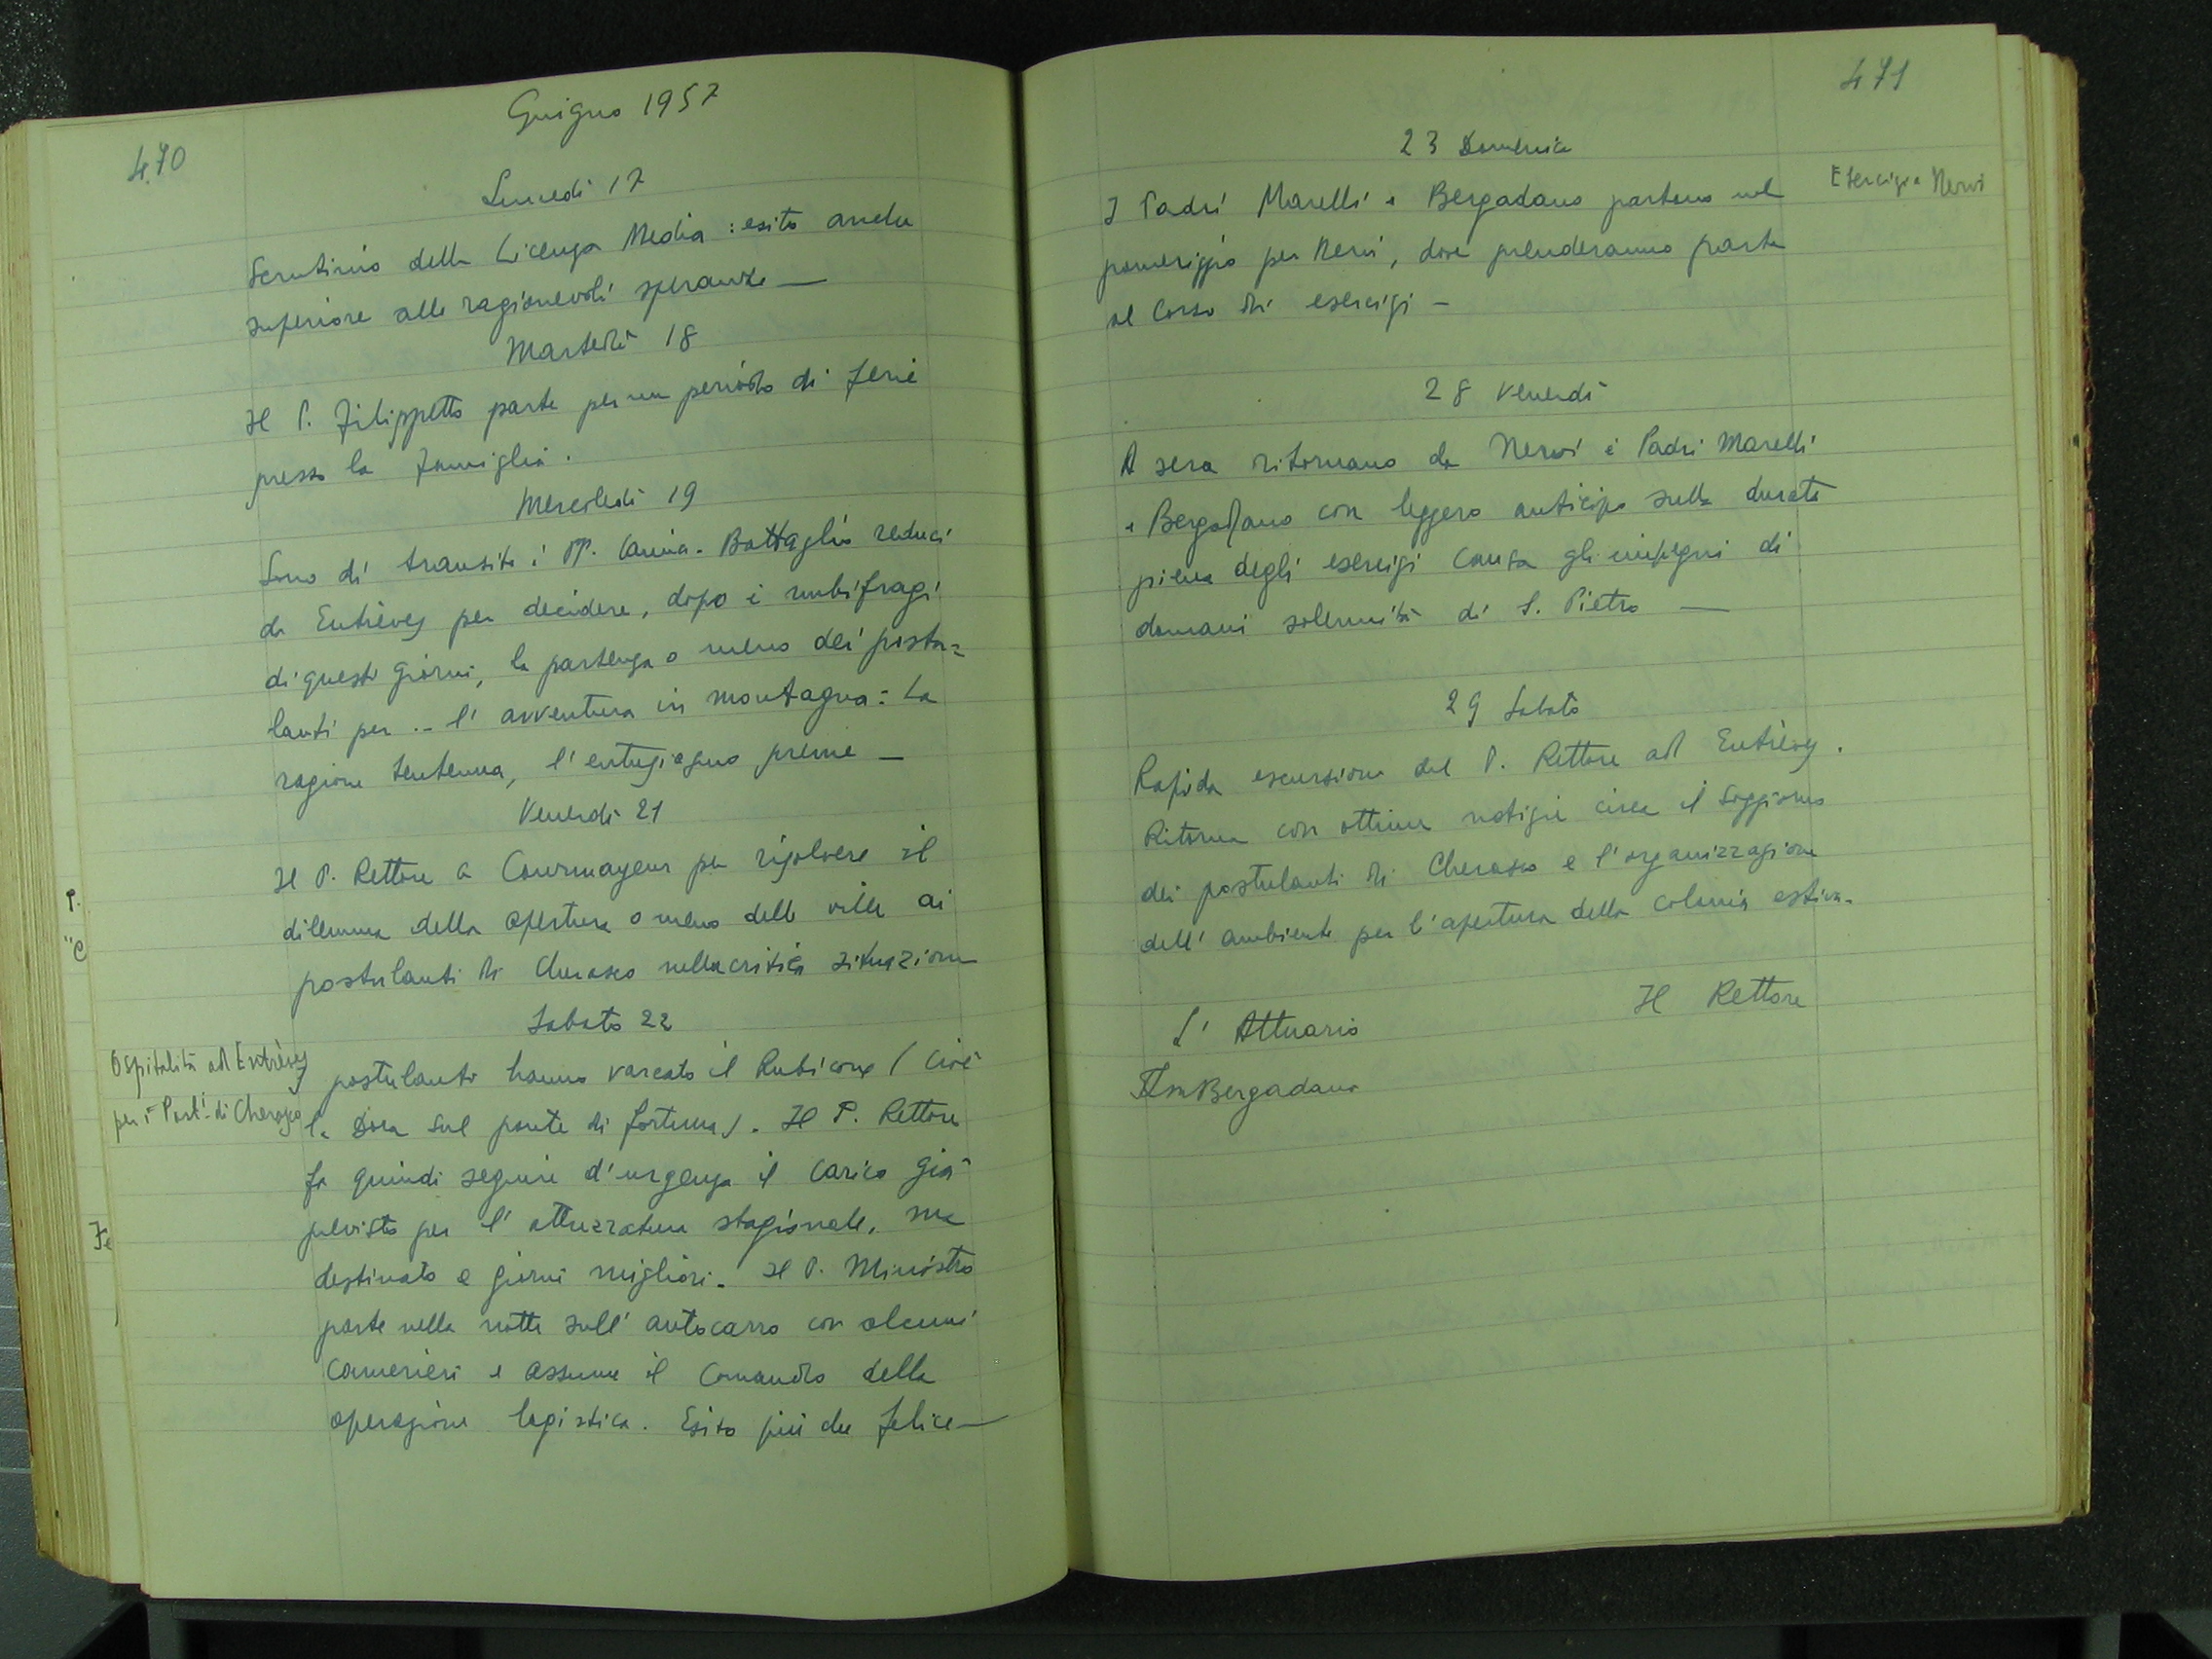 470
Giugno 1957
Lunedì 17
Scrutinio della Licenza Media : esito anche
superiore alle ragionevoli speranze —
Martedì 18
Il P. Filippetto parte per un periodo di ferie
presso la famiglia.
Mercoledì 19
Sono di transito i PP. Battaglia reduci
da Entrèves per decidere, dopo i nubifragi
di questi giorni, la partenza o meno dei postu=
lanti per .. l' avventura in montagna : La
ragione tentenna, l'entusiasmo preme —
Venerdì 21
Il P. Rettore a Courmayeur per risolvere il
dilemma della apertura o meno delle ville ai
postulanti di Cherasco nella critica situazione
Sabato 22
Ospitalità ad Entrèves
per i Post.i di Cherasco
postulanti hanno varcato il Rubicone ( cioè
la Dora sul ponte di fortuna ). Il P. Rettore
fa quindi seguire d'urgenza il carico già
previsto per l' attrezzatura stagionale, ma
destinato a giorni migliori. Il P. Ministro
parte nella notte sull' autocarro con alcuni
camerieri e assume il comando della
operazione logistica. Esito più che felice —
471
23 Domenica
Esercizi a Nervi
I Padri Marelli e Bergadano partono nel
pomeriggio per Nervi, dove prenderanno parte
al Corso di esercizi –
28 Venerdì
A sera ritornano da Nervi i Padri Marelli
e Bergadano con leggero anticipo sulla durata
piena degli esercizi causa gli impegni di
domani solennità di S. Pietro —
29 Sabato
Rapida escursione del P. Rettore ad Entrèves.
Ritorna con ottime notizie circa il soggiorno
dei postulanti di Cherasco e l'organizzazione
dell' ambiente per l'apertura della colonia estiva.
Il Rettore
L' Attuario
Bergadano